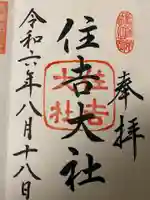 奉拝
住吉大社
令和六年八月十八日
住吉大社